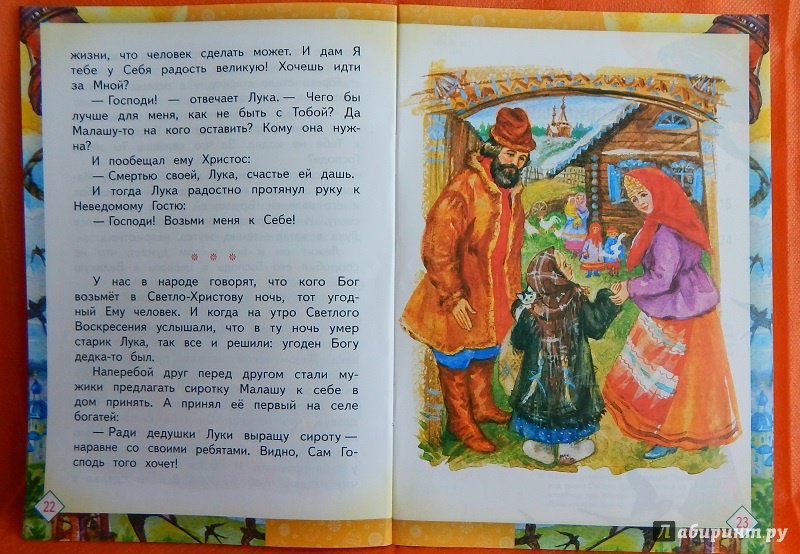 жизни, что человек сделать может. И дам Я
тебе у Себя радость великую! Хочешь идти
за Мной?
— Господи! — отвечает Лука. — Чего бы
лучше для меня, как не быть с Тобой? Да
Малашу-то на кого оставить? Кому она нуж-
на?
И пообещал ему Христос:
— Смертью своей, Лука, счастье ей дашь.
И тогда Лука радостно протянул руку к
Неведомому Гостю:
— Господи! Возьми меня к Себе!
* * *
У нас в народе говорят, что кого Бог
возьмёт в Светло-Христову ночь, тот угод-
ный Ему человек. И когда на утро Светлого
Воскресения услышали, что в ту ночь умер
старик Лука, так все и решили: угоден Богу
дедка-то был.
Наперебой друг перед другом стали му-
жики предлагать сиротку Малашу к себе в
дом принять. А принял её первый на селе
богатей:
— Ради дедушки Луки выращу сироту —
наравне со своими ребятами. Видно, Сам Го-
сподь того хочет!
22
23
Лабиринт.ру